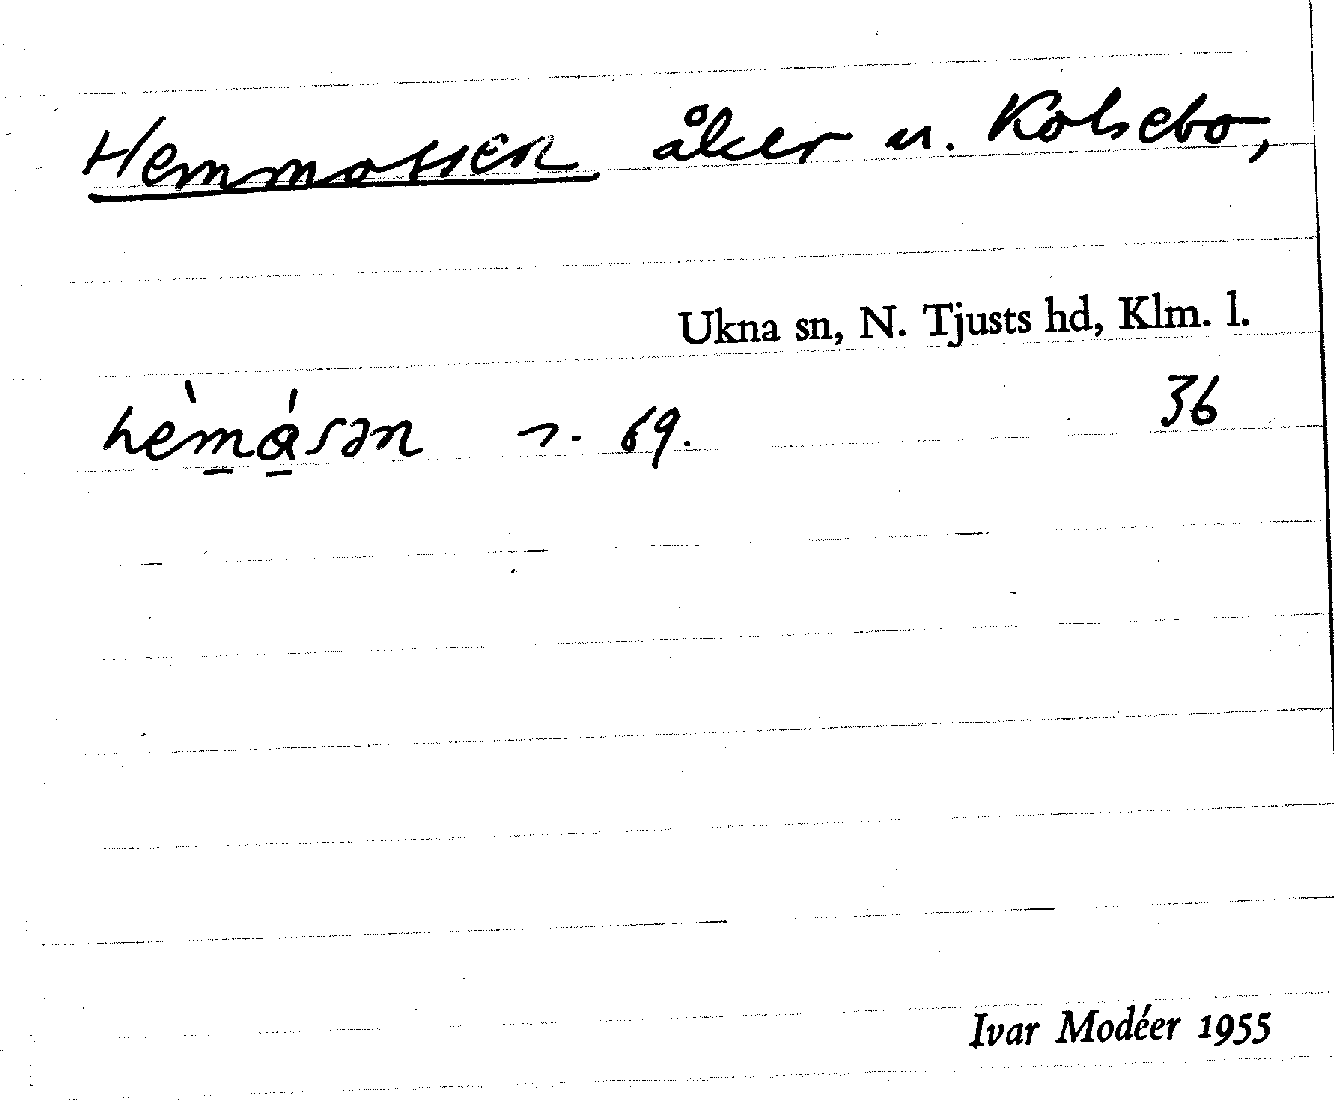 Hemmossen åker u. Kolsebo,
Ukna sn, N. Tjusts hd, Klm. l.
36
hèmɑ́sən n. 69.
Ivar Modéer 1955